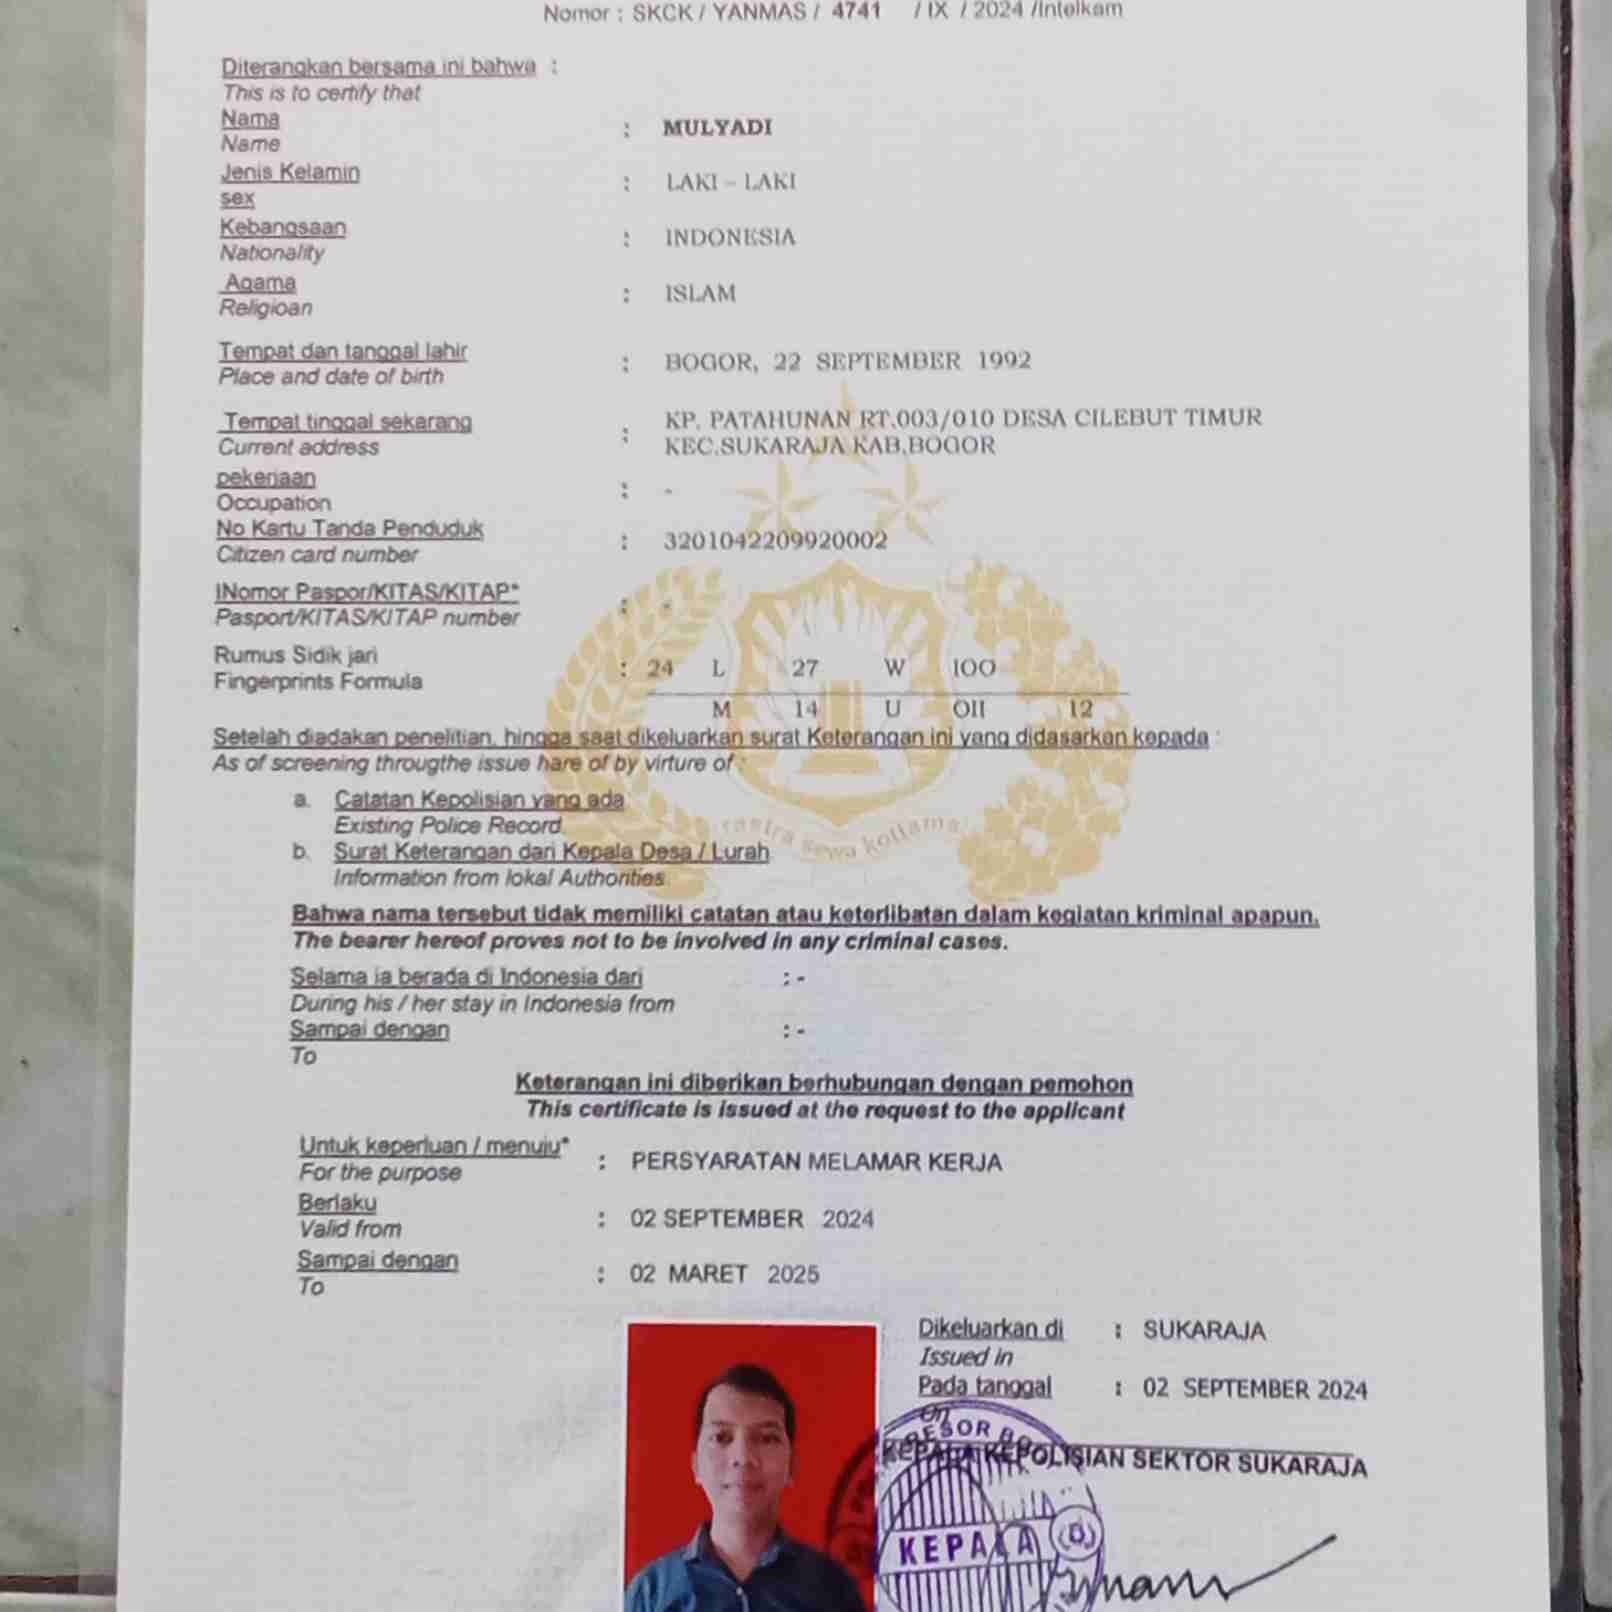 Nomor : SKCK / YANMAS / 4741 / IX / 2024 /Intelkam
Diterangkan bersama ini bahwa :
This is to certify that
Nama
Name
: MULYADI
Jenis Kelamin
sex
: LAKI – LAKI
Kebangsaan
Nationality
: INDONESIA
Agama
Religioan
: ISLAM
Tempat dan tanggal lahir
Place and date of birth
: BOGOR, 22 SEPTEMBER 1992
Tempat tinggal sekarang
Current address
: KP. PATAHUNAN RT.003/010 DESA CILEBUT TIMUR
KEC.SUKARAJA KAB.BOGOR
pekerjaan
Occupation
: -
No Kartu Tanda Penduduk
Citizen card number
: 3201042209920002
INomor Paspor/KITAS/KITAP*
Pasport/KITAS/KITAP number
: -
Rumus Sidik jari
Fingerprints Formula
: 24 L 27 W IOO
M 14 U OII 12
Setelah diadakan penelitian, hingga saat dikeluarkan surat Keterangan ini yang didasarkan kepada :
As of screening througthe issue hare of by virture of :
a. Catatan Kepolisian yang ada
Existing Police Record
b. Surat Keterangan dari Kepala Desa / Lurah
Information from lokal Authorities
rastra sewa kottama
Bahwa nama tersebut tidak memiliki catatan atau keterlibatan dalam kegiatan kriminal apapun.
The bearer hereof proves not to be involved in any criminal cases.
Selama ia berada di Indonesia dari : -
During his / her stay in Indonesia from
Sampai dengan : -
To
Keterangan ini diberikan berhubungan dengan pemohon
This certificate is issued at the request to the applicant
Untuk keperluan / menuju*
For the purpose
: PERSYARATAN MELAMAR KERJA
Berlaku
Valid from
: 02 SEPTEMBER 2024
Sampai dengan
To
: 02 MARET 2025
Dikeluarkan di : SUKARAJA
Issued in
Pada tanggal : 02 SEPTEMBER 2024
On
KEPALA KEPOLISIAN SEKTOR SUKARAJA
KEPALA